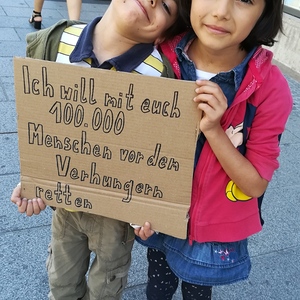 Ich will mit euch
100.000
Menschen vor dem
Verhungern
retten